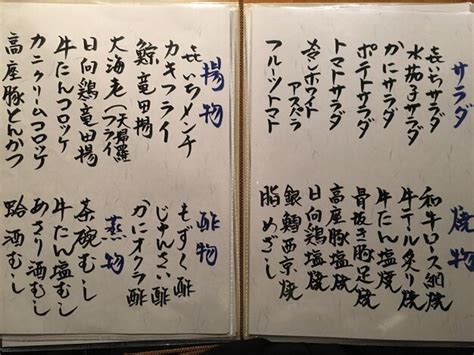 サラダ
㐂いちサラダ
水茄子サラダ
かにサラダ
ポテトサラダ
トマトサラダ
ホワイト
アスパラ
フルーツトマト
焼物
和牛ロース網焼
牛テール炙り焼
牛たん塩焼
骨抜き豚足焼
高座豚塩焼
日向鶏塩焼
銀鱈西京焼
脂めざし
揚物
㐂いちメンチ
カキフライ
鯨竜田揚
大海老(天婦羅
フライ)
日向鶏竜田揚
牛たんコロッケ
カニクリームコロッケ
高座豚とんかつ
酢物
もずく酢
じゅんさい酢
かにオクラ酢
蒸物
茶碗むし
牛たん塩むし
あさり酒むし
蛤酒むし